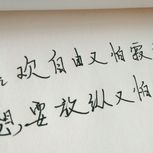 欢自由又怕寂
想,要放纵又怕